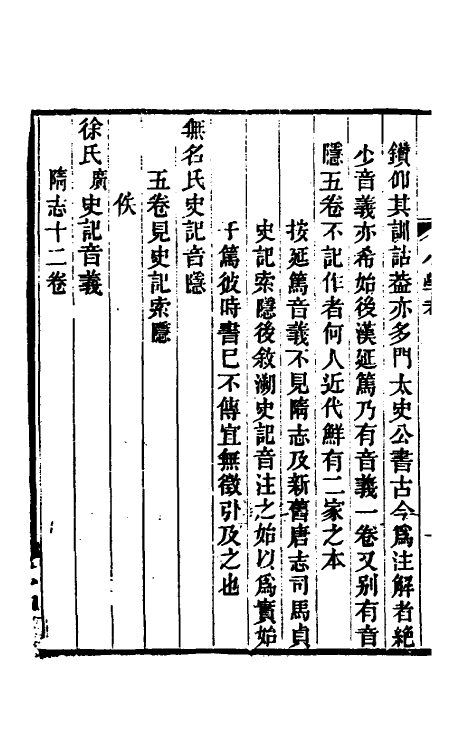 鑽仰其訓詁葢亦多門太史公書古今爲注解者絶
少音義亦希始後漢延篤乃有音義一卷又别有音
隱五卷不記作者何人近代鮮有二家之本
按延篤音義不見隋志及新舊唐志司馬貞
史記索隱後敘溯史記音注之始以爲實始
于篤彼時書巳不傳宜無徵引及之也
無名氏史記音隱
五卷見史記索隱
佚
徐氏廣史記音義
隋志十二卷